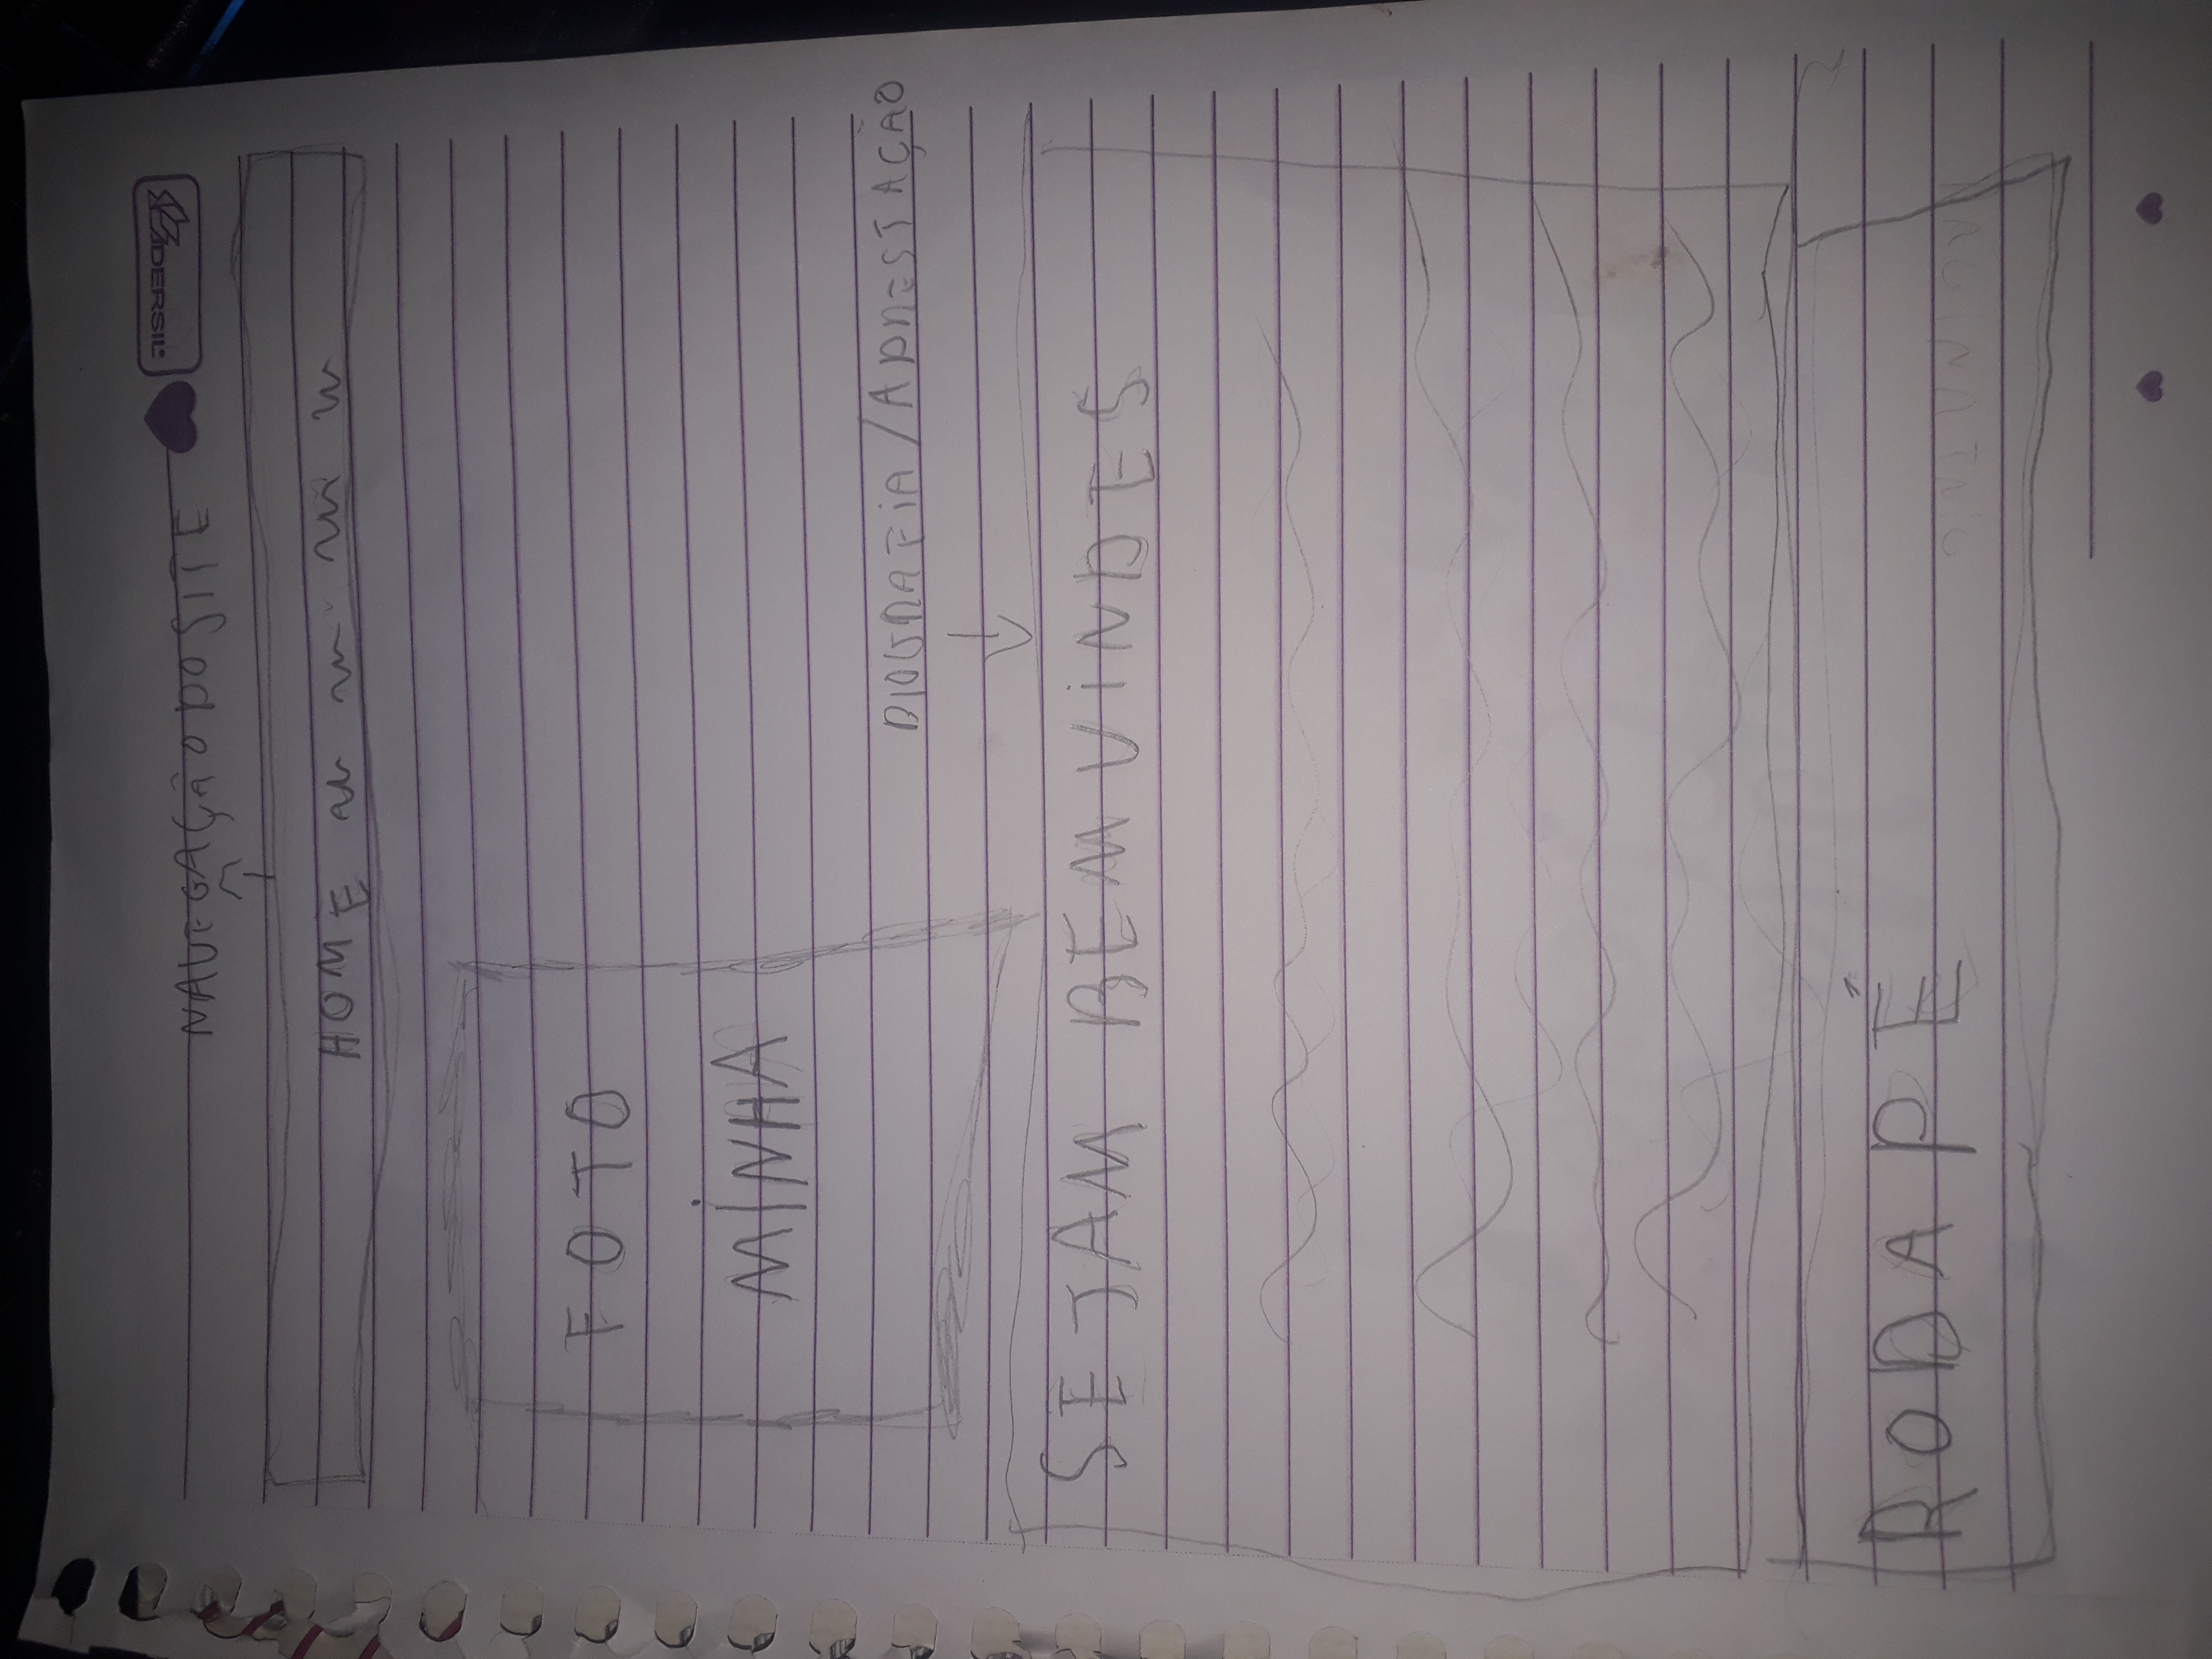 IDERSIL
NAVEGAÇÃO DO SITE
HOME
FOTO
MINHA
BIOGRAFIA / APRESTAÇÃO
SEJAM BEM VINDES
RODAPÉ